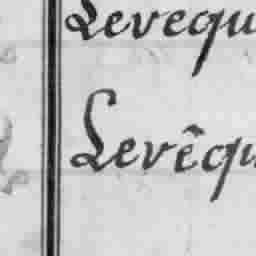 Levequ
Levêqu